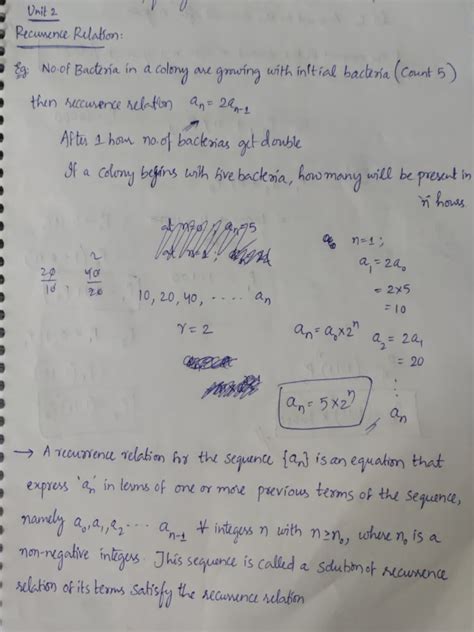 Unit 2
Recurrence Relation:
Eg: No.of Bacteria in a colony are growing with initial bacteria (Count 5)
then reccurence relation aₙ = 2aₙ₋₁
After 1 hour no.of bacterias get double
If a colony begins with five bacteria, how many will be present in
'n' hours
n=1;
a₁ = 2a₀
= 2×5
= 10
20/10 40/20 2
10, 20, 40, .... aₙ
r = 2
aₙ = a₀×2ⁿ
a₂ = 2a₁
= 20
⋮
aₙ
aₙ = 5×2ⁿ
→ A recurrence relation for the sequence {aₙ} is an equation that
express 'aₙ' in terms of one or more previous terms of the sequence,
namely a₀, a₁, a₂ .... aₙ₋₁ ∀ integers n with n≥n₀, where n₀ is a
non-negative integers. This sequence is called a solution of recurrence
relation of its terms satisfy the recurrence relation